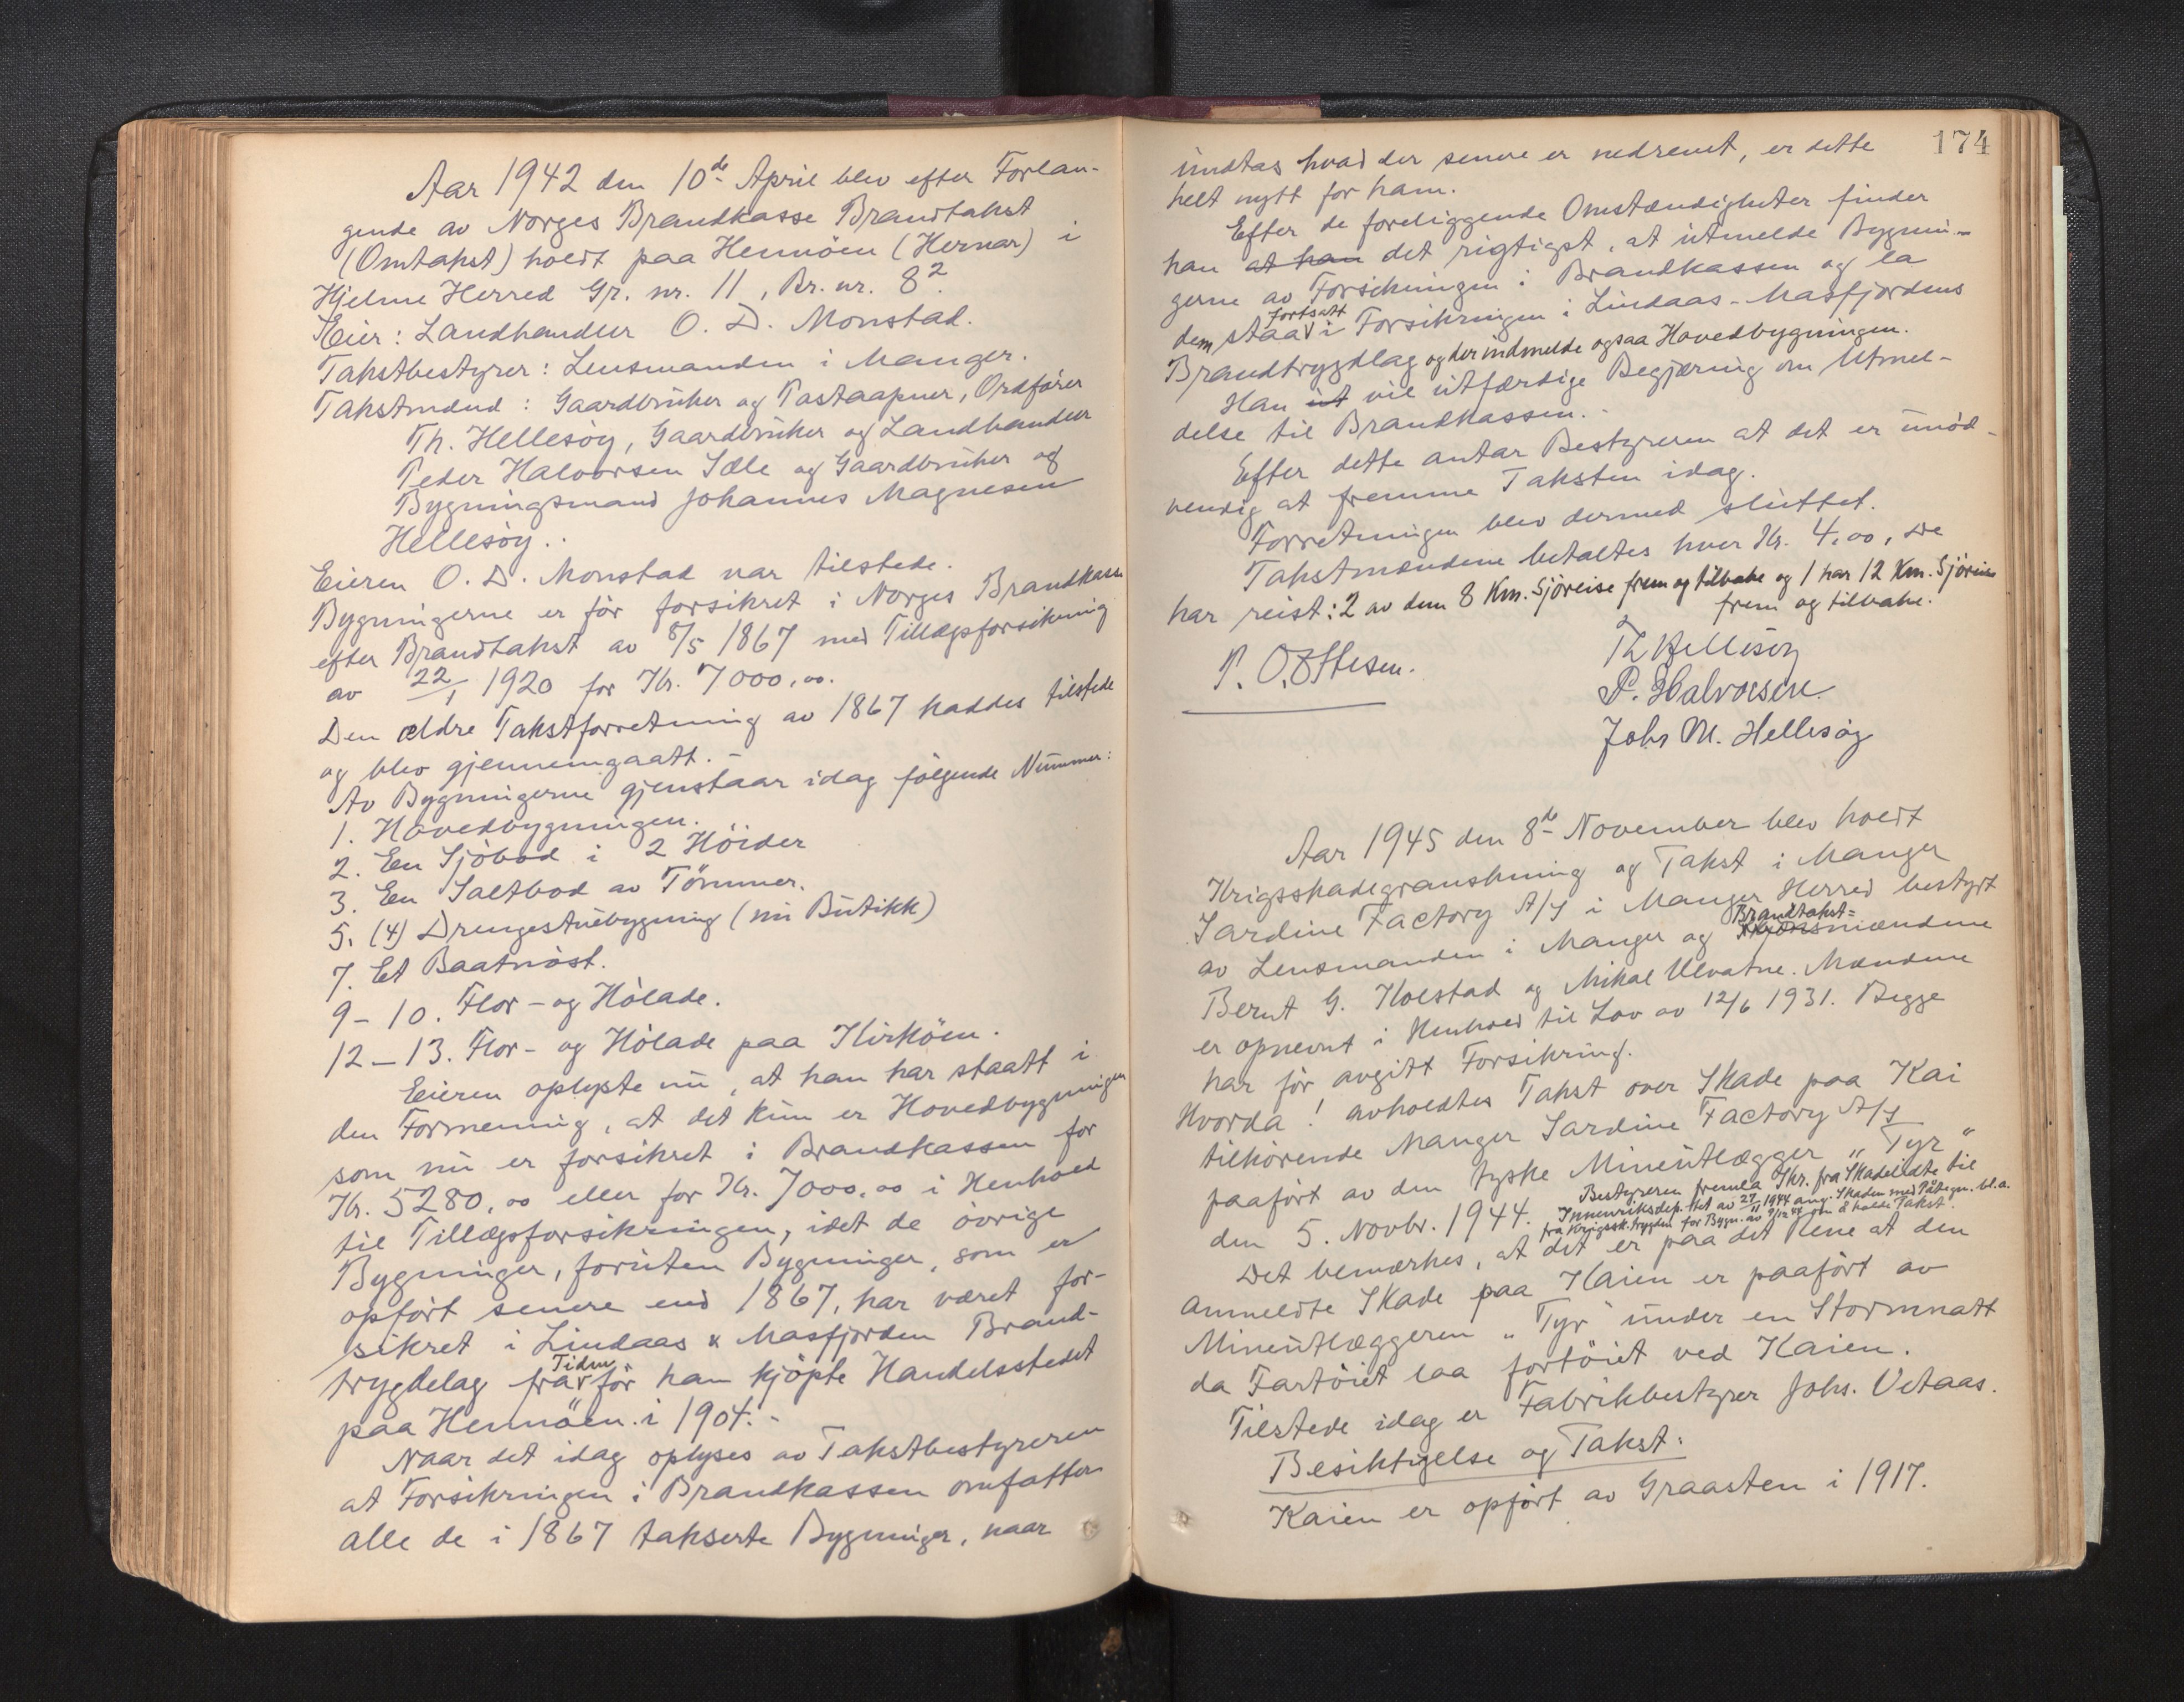 Aar 1942 den 10de April blev efter Forlan-
gende av Norges Brandkasse Brandtakst
(Omtakst) holdt paa Hennöen (Hernar) i
Hjelme Herred Gr. nr. 11, Br. nr. 8².
Eier: Landhandler O. D. Monstad.
Takstbestyrer: Lensmanden i Manger.
Takstmænd: Gaardbruker og Postaapner, Ordförer
Th. Hellesöy, Gaardbruker og Landhandler
Peder Halvorsen Sæle og Gaardbruker og
Bygningsmand Johannes Magnesen
Hellesöy..
Eieren O. D. Monstad var tilstede.
Bygningerne er för forsikret i Norges Brandkasse
efter Brandtakst av 8/5 1867 med Tillægsforsikring
av 22/1 1920 for Kr. 7000,00.
Den ældre Takstforretning av 1867 haddes tilstede
og blev gjennemgaatt.-
Av Bygningerne gjenstaar idag følgende Nummer:
1. Hovedbygningen.
2. En Sjöbod i 2 Höider
3. En Saltbod av Tömmer.
5. (4) Drengestuebygning (nu Butikk)
7. Et Baatnöst.
9-10. Flor- og Hölade.
12-13. Flor- og Hölade paa Kirköen.
Eieren oplyste nu, at han har staatt i
den Formening, at det kun er Hovedbygningen
som nu er forsikret i Brandkassen for
Kr. 5280,00 eller for Kr. 7000,00 i Henhold
til Tillægsforsikringen, idet de övrige
Bygninger, foruten Bygninger, som er
opfört senere end 1867, har været for-
sikret i Lindaas & Masfjorden Brand-
trygdelag fra Tiden för han kjöpte Handelsstedet
paa Hennöen i 1904.-
Naar det idag oplyses av Takstbestyreren
at Forsikringen i Brandkassen omfatter
alle de i 1867 takserte Bygninger, naar
174
undtas hvad der senere er nedrevet, er dette
helt nytt for ham.
Efter de foreliggende Omstændigheter finder
han at han det rigtigst, at utmelde Bygnin-
gerne av Forsikringen i Brandkassen og la
dem staa fortsatt i Forsikringen i Lindaas-Masfjordens
Brandtrygdlag og der indmelde ogsaa Hovedbygningen.
Han ut vil utfærdige Begjæring om Utmel-
delse til Brandkassen.-
Efter dette antar Bestyreren at det er unöd-
vendig at fremme Taksten idag.
Forretningen blev dermed sluttet.
Takstmændene betaltes hver Kr. 4,00, De
har reist: 2 av dem 8 Km. Sjöreise frem og tilbake og 1 har 12 Km. Sjöreise
frem og tilbake.
P. O. Ottesen.
Th Hellesöy
P. Halvorsen
Johs M. Hellesöy
Aar 1945 den 8de November blev holdt
Krigsskadegranskning og Takst i Manger
Sardine Factory A/S i Manger Herred bestyrt
av Lensmanden i Manger og Brandtakst=mændene
Bernt G. Kolstad og Mikal Ulvatne. Mændene
er opnevnt i Henhold til Lov av 12/6 1931. Begge
har för avgitt Forsikring.
Hvorda! avholdtes Takst over Skade paa Kai
tilhörende Manger Sardine Factory A/S
paafört av den tyske Mineutlægger "Tyr"
den 5. Novbr. 1944. Bestyreren fremla Skr. fra Skadelidte til
Innenriksdep.tet av 27/11 1944 ang. Skaden med Påtegn. bl.a.
fra Krigssk.trygden for Bygn. av 9/12 44 om å holde Takst.
Det bemærkes, at det er paa det Rene at den
anmeldte Skade paa Kaien er paafört av
Mineutlæggeren "Tyr" under en Stormnatt
da Fartöiet laa fortöiet ved Kaien.
Tilstede idag er Fabrikbestyrer Johs. Vetaas.
Besiktigelse og Takst:
Kaien er opfört av Graasten i 1917.